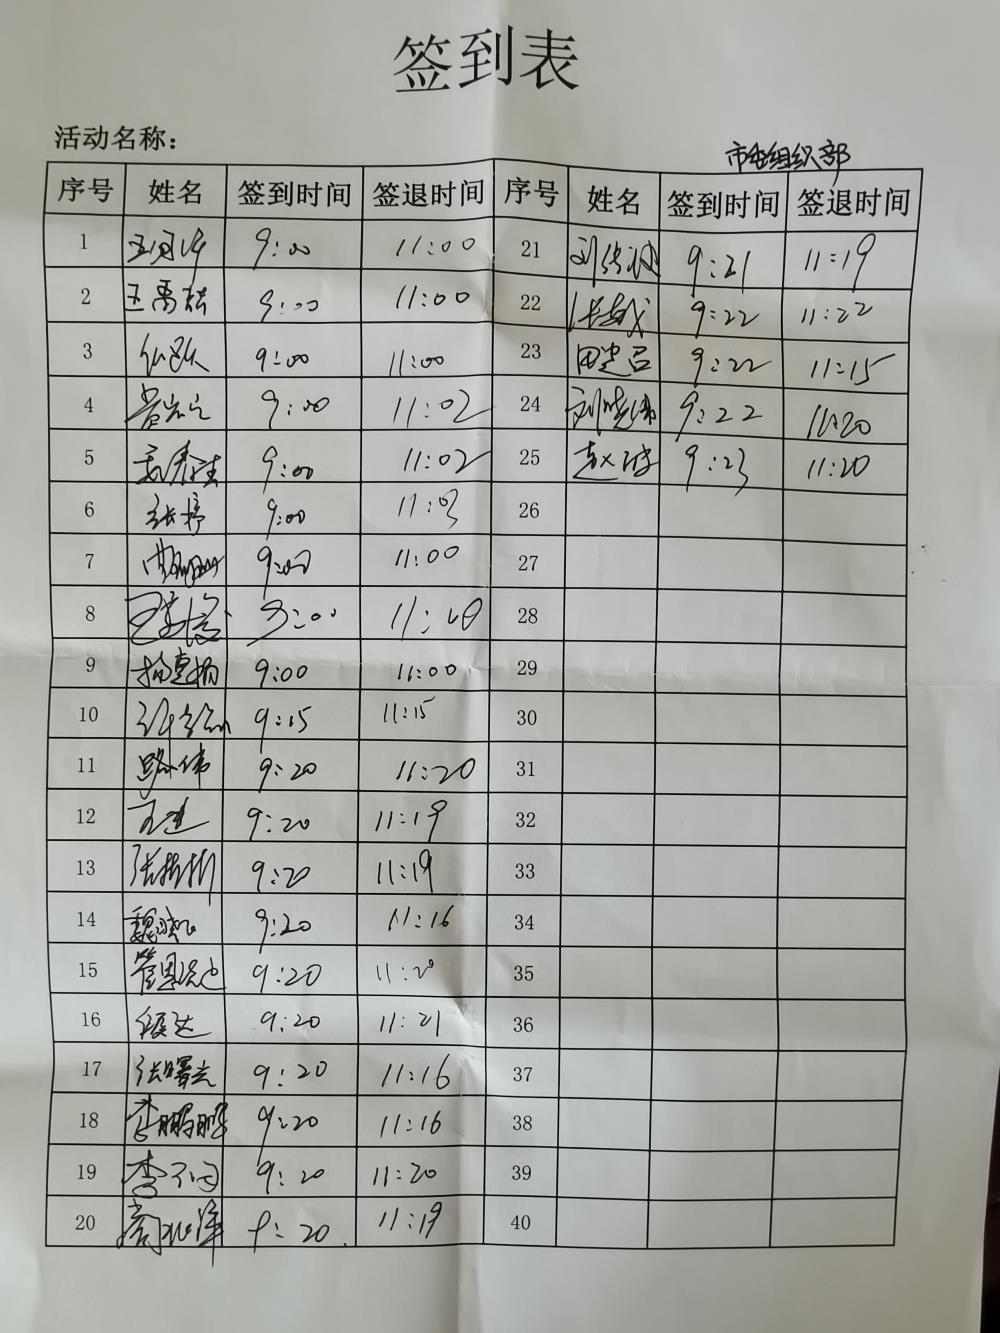 签到表
活动名称：
市委组织部
序号 姓名 签到时间 签退时间 序号 姓名 签到时间 签退时间
1 9:00 11:00 21 9:21 11:19
2 9:00 11:00 22 张越 9:22 11:22
3 9:00 11:00 23 9:22 11:15
4 9:00 11:02 24 刘晓伟 9:22 11:20
5 9:00 11:02 25 9:23 11:20
6 张婷 9:00 11:03 26
7 9:00 11:00 27
8 9:00 28
9 杨惠杨 9:00 11:00 29
10 9:15 11:15 30
11 路伟 9:20 11:20 31
12 王建 9:20 11:19 32
13 9:20 11:19 33
14 9:20 11:16 34
15 9:20 11:20 35
16 9:20 11:21 36
17 张曙光 9:20 11:16 37
18 李鹏鹏 9:20 11:16 38
19 9:20 11:20 39
20 9:20 11:19 40